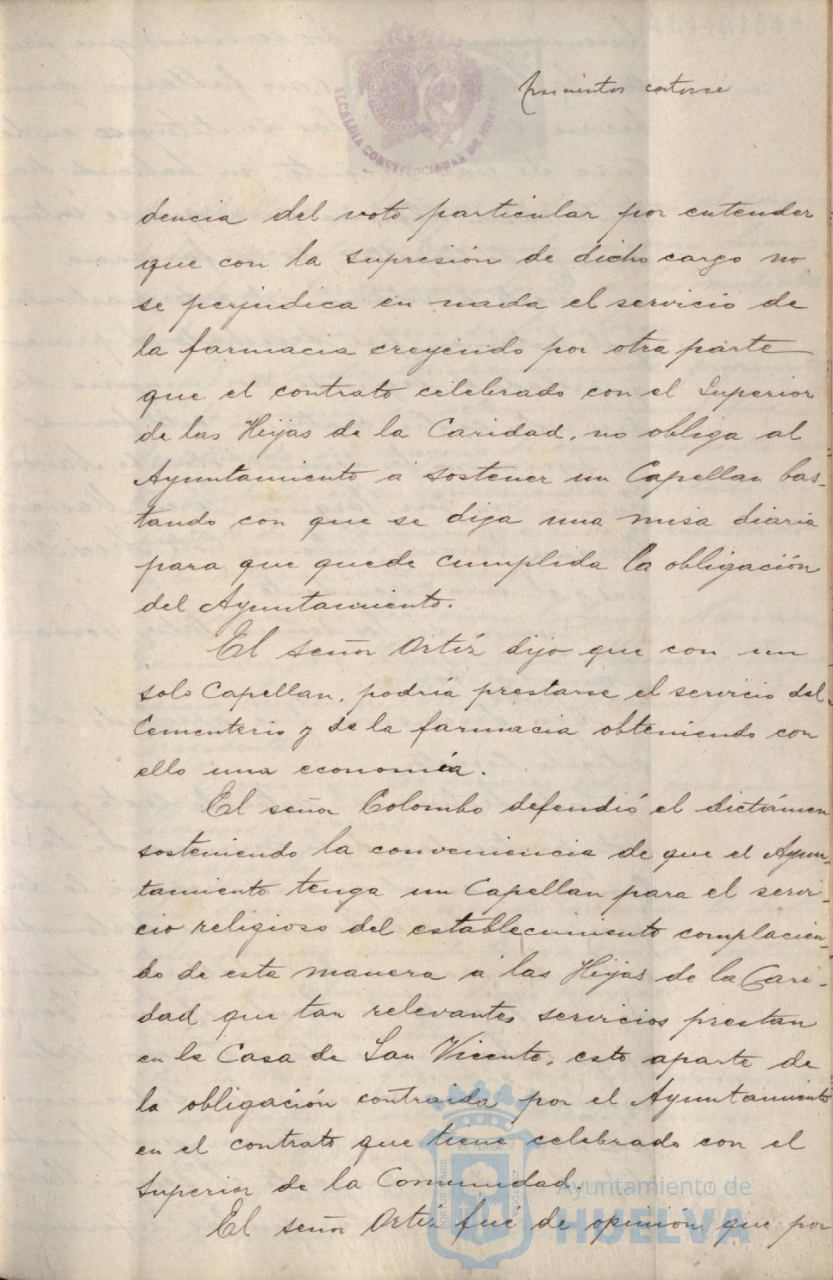 catorce
ALCALDIA CONSTITUCIONAL DE HUELVA
dencia del voto particular por entender
que con la supresión de dicho cargo no
se perjudica en nada el servicio de
la farmacia creyendo por otra parte
que el contrato celebrado con el Superior
de las Hijas de la Caridad, no obliga al
Ayuntamiento a sostener un Capellan bas-
tando con que se diga una misa diaria
para que quede cumplida la obligación
del Ayuntamiento.
El señor Ortíz dijo que con un
solo Capellan, podría prestarse el servicio del
Cementerio y de la farmacia obteniendo con
ello una economía.
El señor Colombo defendió el dictámen
sosteniendo la conveniencia de que el Ayun-
tamiento tenga un Capellan para el servi-
cio religioso del establecimiento complacien-
do de esta manera a las Hijas de la Cari-
dad que tan relevantes servicios prestan
en la Casa de San Vicente, esto aparte de
la obligación contraida por el Ayuntamiento
en el contrato que tiene celebrado con el
Superior de la Comunidad.
El señor Ortíz fué de opinión que por
Ayuntamiento de
HUELVA